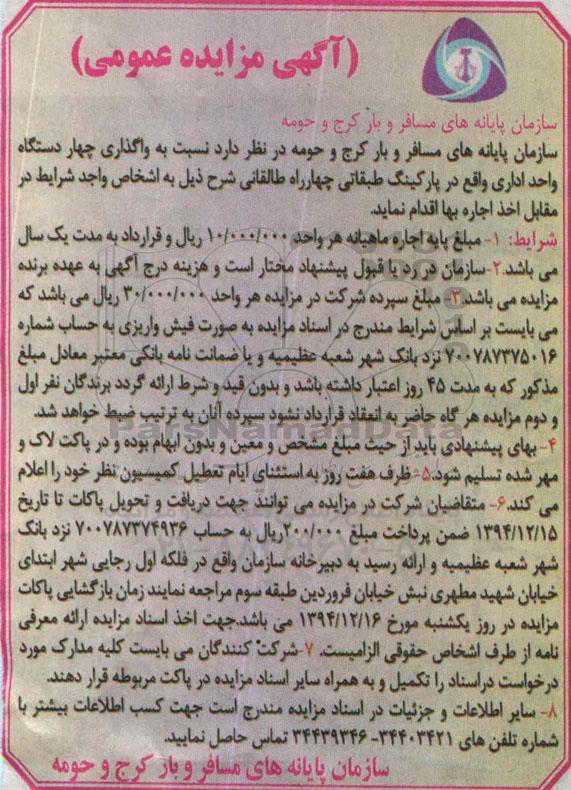 (آگهی مزایده عمومی)
سازمان پایانه های مسافر و بار کرج و حومه
سازمان پایانه های مسافر و بار کرج و حومه در نظر دارد نسبت به واگذاری چهار دستگاه
واحد اداری واقع در پارکینگ طبقاتی چهارراه طالقانی شرح ذیل به اشخاص واجد شرایط در
مقابل اخذ اجاره بها اقدام نماید.
شرایط: ۱- مبلغ پایه اجاره ماهیانه هر واحد ۱۰/۰۰۰/۰۰۰ ریال و قرارداد به مدت یک سال
می باشد.۲-سازمان در رد یا قبول پیشنهاد مختار است و هزینه درج آگهی به عهده برنده
مزایده می باشد.۳- مبلغ سپرده شرکت در مزایده هر واحد ۳۰/۰۰۰/۰۰۰ ریال می باشد که
می بایست بر اساس شرایط مندرج در اسناد مزایده به صورت فیش واریزی به حساب شماره
۷۰۰۷۸۷۳۷۵۰۱۶ نزد بانک شهر شعبه عظیمیه و یا ضمانت نامه بانکی معتبر معادل مبلغ
مذکور که به مدت ۴۵ روز اعتبار داشته باشد و بدون قید و شرط ارائه گردد برندگان نفر اول
و دوم مزایده هر گاه حاضر به انعقاد قرارداد نشود سپرده آنان به ترتیب ضبط خواهد شد.
۴- بهای پیشنهادی باید از حیث مبلغ مشخص و معین و بدون ابهام بوده و در پاکت لاک و
مهر شده تسلیم شود.۵- ظرف هفت روز به استثنای ایام تعطیل کمیسیون نظر خود را اعلام
می کند.۶- متقاضیان شرکت در مزایده می توانند جهت دریافت و تحویل پاکات تا تاریخ
۱۳۹۴/۱۲/۱۵ ضمن پرداخت مبلغ ۲۰۰/۰۰۰ریال به حساب ۷۰۰۷۸۷۳۷۴۹۳۶ نزد بانک
شهر شعبه عظیمیه و ارائه رسید به دبیرخانه سازمان واقع در فلکه اول رجایی شهر ابتدای
خیابان شهید مطهری نبش خیابان فروردین طبقه سوم مراجعه نمایند زمان بازگشایی پاکات
مزایده در روز یکشنبه مورخ ۱۳۹۴/۱۲/۱۶ می باشد.جهت اخذ اسناد مزایده ارائه معرفی
نامه از طرف اشخاص حقوقی الزامیست. ۷-شرکت کنندگان می بایست کلیه مدارک مورد
درخواست دراسناد را تکمیل و به همراه سایر اسناد مزایده در پاکت مربوطه قرار دهند.
۸- سایر اطلاعات و جزئیات در اسناد مزایده مندرج است جهت کسب اطلاعات بیشتر با
شماره تلفن های ۳۴۴۰۳۴۲۱- ۳۴۴۳۹۳۴۶ تماس حاصل نمایید.
سازمان پایانه های مسافر و بار کرج و حومه
ParsNamadData